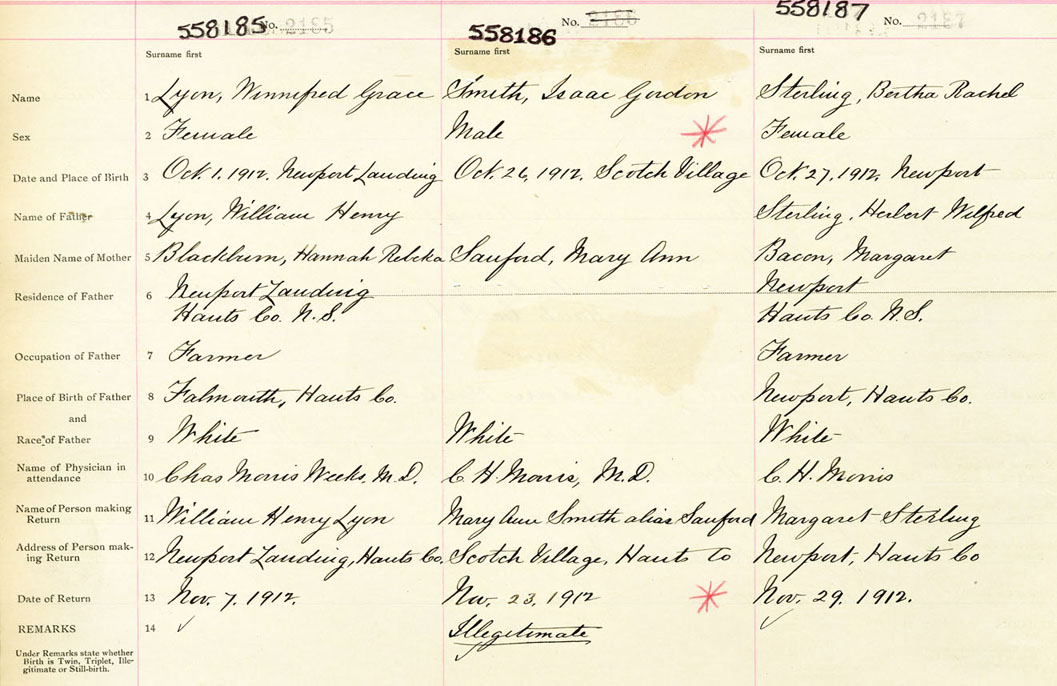 558185 No. 2165 558186 No. 2166 558187 No. 2167
Surname first Surname first Surname first
Name 1 Lyon, Winnifred Grace Smith, Isaac Gordon Sterling, Bertha Rachel
Sex 2 Female Male Female
Date and Place of Birth 3 Oct. 1. 1912. Newport Landing Oct. 26, 1912. Scotch Village Oct. 27, 1912. Newport
Name of Father 4 Lyon, William Henry Sterling, Herbert Wilfred
Maiden Name of Mother 5 Blackburn, Hannah Rebcka Sanford, Mary Ann Bacon, Margaret
Residence of Father 6 Newport Landing Newport
Hants Co. N.S. Hants Co. N.S.
Occupation of Father 7 Farmer Farmer
Place of Birth of Father 8 Falmouth, Hants Co. Newport, Hants Co.
and
Race of Father 9 White White White
Name of Physician in
attendance 10 Chas Morris Weeks, M.D. C. H. Morris, M.D. C. H. Morris
Name of Person making
Return 11 William Henry Lyon Mary Ann Smith alias Sanford Margaret Sterling
Address of Person mak-
ing Return 12 Newport Landing, Hants Co. Scotch Village, Hants Co Newport, Hants Co
Date of Return 13 Nov. 7. 1912. Nov. 23, 1912 Nov. 29. 1912.
REMARKS 14 Illegitimate
Under Remarks state whether
Birth is Twin, Triplet, Ille-
gitimate or Still-birth.